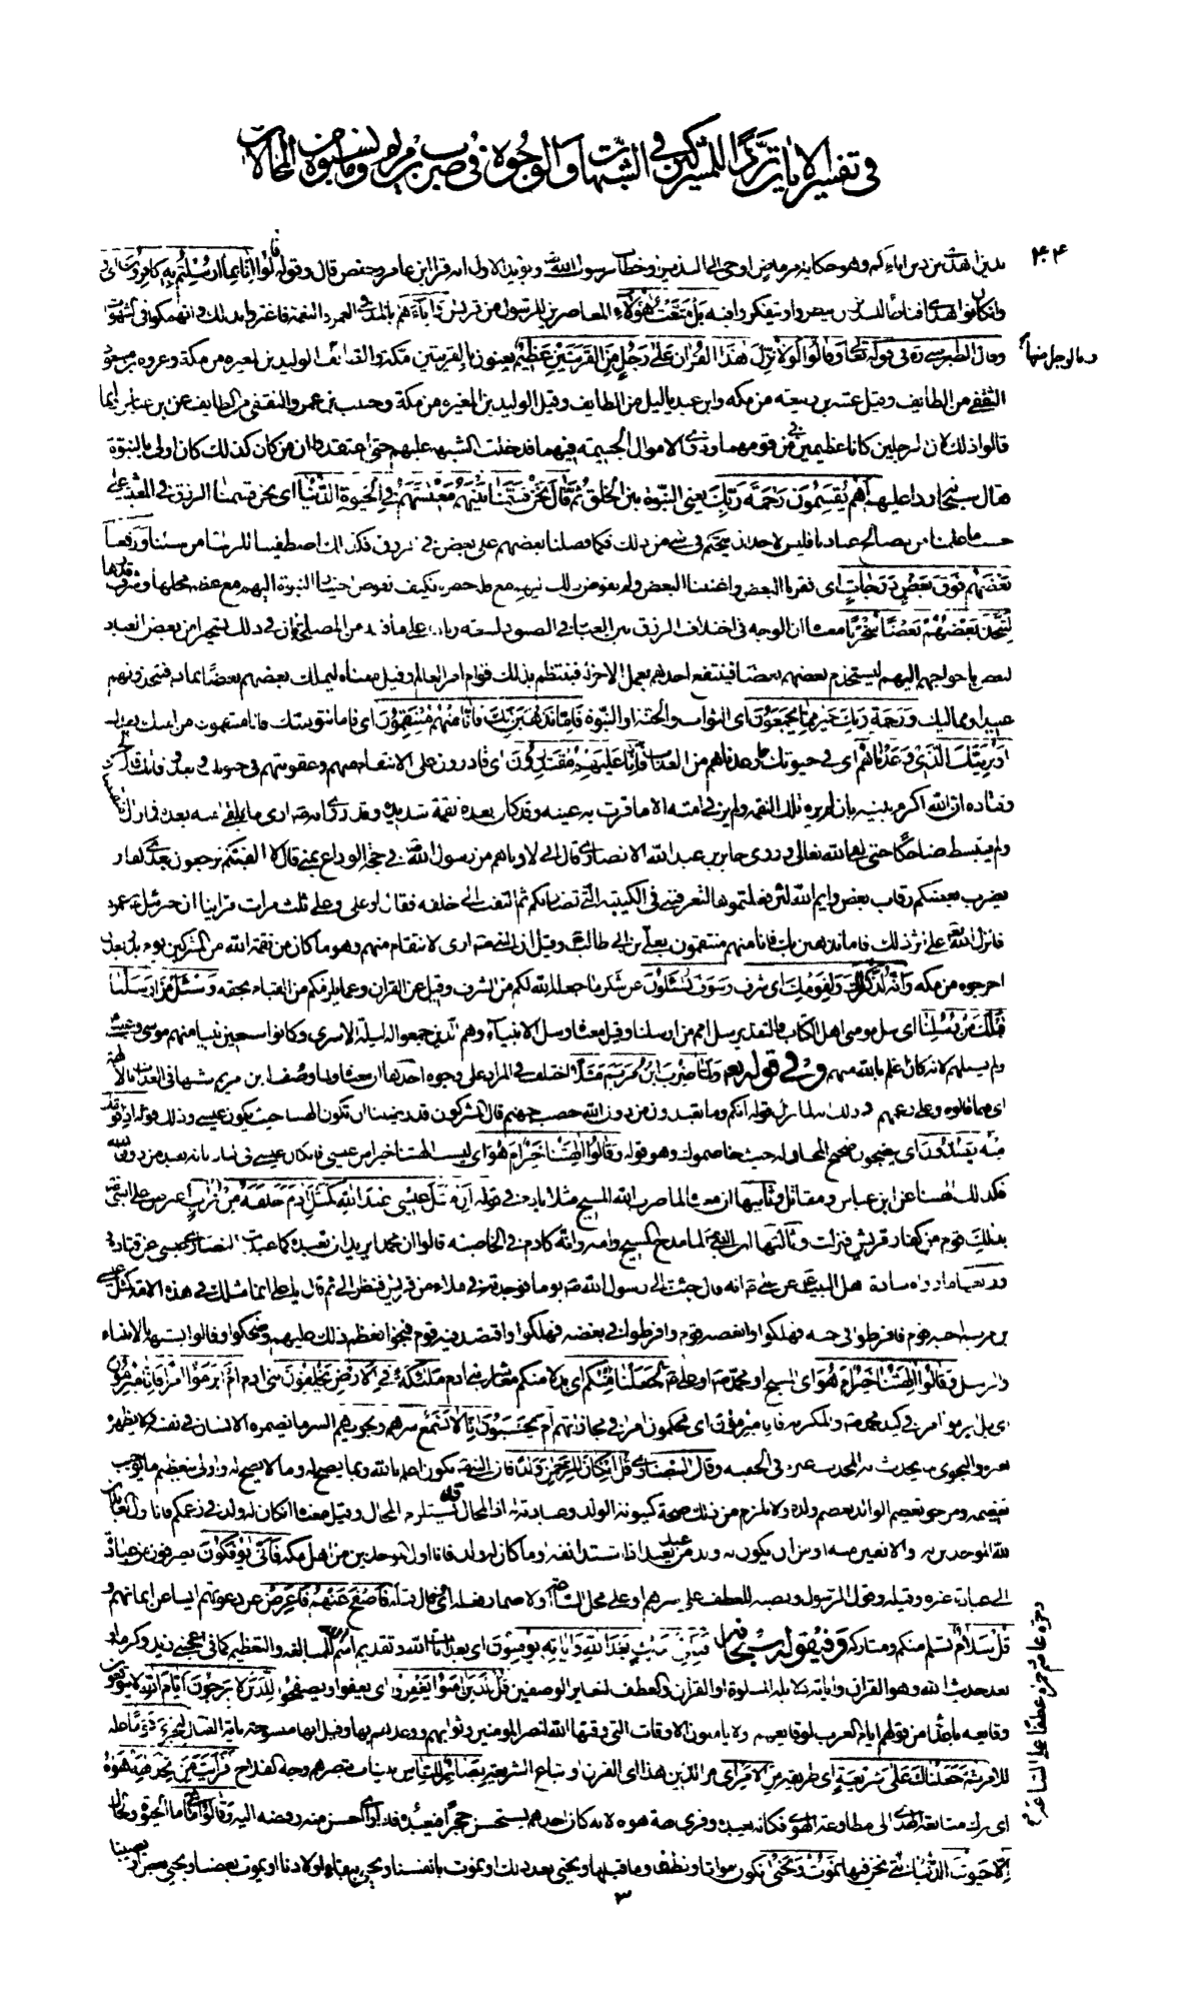 في تفسير الايات ترى المشركين في الشبهات والوجوه في ضرب بن مريم وما نسبوه من المحالات
۴۴
بدين اهدى من دين اباءكم وهو حكاية امر ماض اوحى الى النذير او خطاب لرسول الله ويؤيد الاول انه قرا ابن عامر وحفص قال وقوله قالوا انا بما ارسلتم به كافرون اى
وان كان اهدى اقناطا للنذير من ان ينظروا او يتفكروا فيه بل متعت هؤلاء المعاصرين للرسول من قريش واباءهم بالمد في العمر والنعمة فاغتروا بذلك وانهمكوا في الشهوات
وقال الطبرسى ره في قوله تعالى وقالوا لولا نزل هذا القران على رجل من القريتين عظيم يعنون بالقريتين مكة والطائف الوليد بن المغيره من مكة وعروة بن مسعود
الثقفى من الطايف وقيل عتبه بن ربيعه من مكه وابن عبد ياليل من الطايف وقيل الوليد بن المغيره من مكة وحبيب بن عمرو الثقفى من الطايف عن ابن عباس وانما
قالوا ذلك لان الرجلين كانا عظيمين في قومهما وذوى الاموال الجسيمه فيهما فدخلت الشبهه عليهم حتى اعتقدوا ان من كان كذلك كان اولى بالنبوة
فقال سبحانه ردا عليهم اهم يقسمون رحمة ربك يعنى النبوة بين الخلق ثم قال نحن قسمنا بينهم معيشتهم في الحيوة الدنيا اى نحن قسمنا الرزق في المعيشة على
حسب ما علمنا من مصالح عبادنا فليس لاحد ان يتحكم في شىء من ذلك فكما فضلنا بعضهم على بعض في الرزق فكذلك اصطفينا للرسالة من شئنا ورفعنا
بعضهم فوق بعض درجات اى افقرنا البعض واغنينا البعض ولم نفوض ذلك اليهم مع قلة خطره فكيف نفوض اختيار النبوة اليهم مع عظم محلها وشرف قدرها
ليتخذ بعضهم بعضا سخريا معناه ان الوجه في اختلاف الرزق بين العباد في الضيق والسعة زيادة على ما فيه من المصلحة ان في ذلك تسخيرا من بعض العباد
لبعض باحواجهم اليهم ليستخدم بعضهم بعضا فينتفع احدهم بعمل الاخر له فينتظم بذلك قوام امر العالم وقيل معناه ليملك بعضهم بعضا بمالهم فيتخذونهم
عبيدا ومماليك ورحمة ربك خير مما يجمعون اى الثواب والجنة او النبوة فاما نذهبن بك فانا منهم منتقمون اى فاما نتوفينك فانا منتقمون من امتك بعدك
او نرينك الذى وعدناهم اى في حيوتك ما وعدناهم من العذاب فانا عليهم مقتدرون اى قادرون على الانتقام منهم وعقوبتهم في حيوتك وبعد وفاتك
وقتاده ان الله اكرم نبيه بان لم يره تلك النقمه ولم ير في امته الا ما قرت به عينه وقد كان بعده نقمة شديده وقد روى انه صلى ارى ما يلقى امته بعده فما زال منقبضا
ولم ينبسط ضاحكا حتى لقى الله تعالى وروى جابر بن عبد الله الانصارى قال انى لادناهم من رسول الله في حجة الوداع بمنى قال لا الفينكم ترجعون بعدى كفارا
يضرب بعضكم رقاب بعض وايم الله لئن فعلتموها لتعرفنى في الكتيبة التى تضاربكم ثم التفت الى خلفه فقال او على او على ثلث مرات فراينا ان جبرئيل غمزه
فانزل الله تعالى على اثر ذلك فاما نذهبن بك فانا منهم منتقمون بعلى بن ابى طالب وقيل ان النبى ارى الانتقام منهم وهو ما كان من نقمة الله من المشركين يوم بدر بعد ان
اخرجوه من مكه وانه لذكر لك ولقومك اى شرف وسوف تسئلون عن شكر ما جعله الله لكم من الشرف وقيل عن القران وعما يلزمكم من القيام بحقه وسئل من ارسلنا
قبلك من رسلنا اى سل مومنى اهل الكتاب والتقدير سل امم من ارسلنا وقيل معناه وسل الانبياء وهم الذين جمعوا له ليلة الاسرى وكانوا سبعين نبيا منهم موسى وعيسى
ولم يسئلهم لانه كان اعلم بالله منهم وفي قوله تعالى ولما ضرب ابن مريم مثلا اختلف في المراد على وجوه احدها ان معناه ولما وصف ابن مريم شبها في العذاب بالالهة
اى فيما قالوه وعلى زعمهم وذلك انه لما نزل قوله انكم وما تعبدون من دون الله حصب جهنم قال المشركون قد رضينا ان تكون الهتنا حيث يكون عيسى وذلك قوله اذا قومك
منه يصدون اى يضجون ضجيج المجادلة حيث خاصموك وهو قوله وقالوا االهتنا خير ام هو اى ليست الهتنا خيرا من عيسى فان كان عيسى في النار بانه يعبد من دون الله
فكذلك الهتنا عن ابن عباس ومقاتل وثانيها ان معناه لما ضرب الله المسيح مثلا بادم في قوله ان مثل عيسى عند الله كمثل ادم خلقه من تراب اعترض على النبى
بذلك قوم من كفار قريش فنزلت وثالثها ان النبى لما مدح المسيح وامه وانه كادم في الخاصيه قالوا ان محمدا يريد ان نعبده كما عبدت النصارى عيسى عن قتادة
ورابعها ما رواه سادة اهل البيت عن على انه قال جئت الى رسول الله ص يوما فوجدته في ملاء من قريش فنظر الى ثم قال يا على انما مثلك في هذه الامة كمثل عيسى
بن مريم احبه قوم فافرطوا في حبه فهلكوا وابغضه قوم وافرطوا في بغضه فهلكوا واقتصد فيه قوم فنجوا فعظم ذلك عليهم وضحكوا وقالوا يشبهه بالانبياء
والرسل وقالوا االهتنا خير ام هو اى المسيح او محمد ص او على ع لجعلنا منكم اى بدلا منكم معاشر بنى ادم ملئكة في الارض يخلفون بنى ادم ام ابرموا امرا فانا مبرمون
اى بل ابرموا امرا في كيد محمد ص والمكر به فانا مبرمون اى محكمون امرا في مجازاتهم ام يحسبون انا لا نسمع سرهم ونجويهم السر ما يضمره الانسان في نفسه ولا يظهره
لغيره والنجوى ما يحدث به المحدث غيره في الخفيه وقال البيضاوى قل ان كان للرحمن ولد فان النبى يكون اعلم بالله وبما يصح له وما لا يصح له واولى بتعظيم ما يوجب
تعظيمه ومن حق تعظيم الوالد تعظيم ولده ولا يلزم من ذلك صحة كينونة الولد وعبادته له اذ المحال قد يستلزم المحال وقيل معناه ان كان له ولد في زعمكم فانا اول العابدين
لله الموحدين له او الانفين منه او من ان يكون له ولد من عبد يعبد اذا اشتد انفه او ما كان له ولد فانا اول الموحدين من اهل مكه فانى يؤفكون يصرفون عن عبادته
الى عبادة غيره وقيله وقول الرسول ونصبه للعطف على سرهم او على محل الساعة او لاضمار فعله اى قال قيله فاصفح عنهم فاعرض عن دعوتهم ايسا عن ايمانهم و
قل سلام تسلم منكم ومتاركه وفي قوله سبحانه فباى حديث بعد الله واياته يؤمنون اى بعد ايات الله وتقديم اسم الله للمبالغه والتعظيم كما في اعجبنى زيد وكرمه او
بعد حديث الله وهو القران واياته دلائله المتلوة او القران والعطف لتغاير الوصفين قل للذين امنوا يغفروا اى يعفوا ويصفحوا للذين لا يرجون ايام الله لا يتوقعون
وقايعه باعدائه من قولهم ايام العرب لوقايعهم او لا ياملون الاوقات التى وقتها الله لنصر المومنين وثوابهم ووعدهم بها وقيل انها منسوخة باية القتال ليجزى قوما علة
للامر ثم جعلناك على شريعة اى طريقة من الامر اى امر الدين هذا اى القران او اتباع الشريعة بصائر للناس بينات تبصرهم وجه الفلاح افرايت من اتخذ الهه هويه
اى ترك متابعة الهدى الى مطاوعة الهوى فكانه يعبده وقرى الهة هويه لانه كان احدهم يستحسن حجرا فيعبده فاذا راى احسن منه رفضه اليه وقالوا ما الحيوة او الحال
الا حيوتنا الدنيا التى نحن فيها نموت ونحيى اى نكون امواتا ونطفا وما قبلها ونحيى بعد ذلك او نموت بانفسنا ونحيى ببقاء اولادنا او يموت بعضنا ويحيى بعضنا او يصيبنا
۳